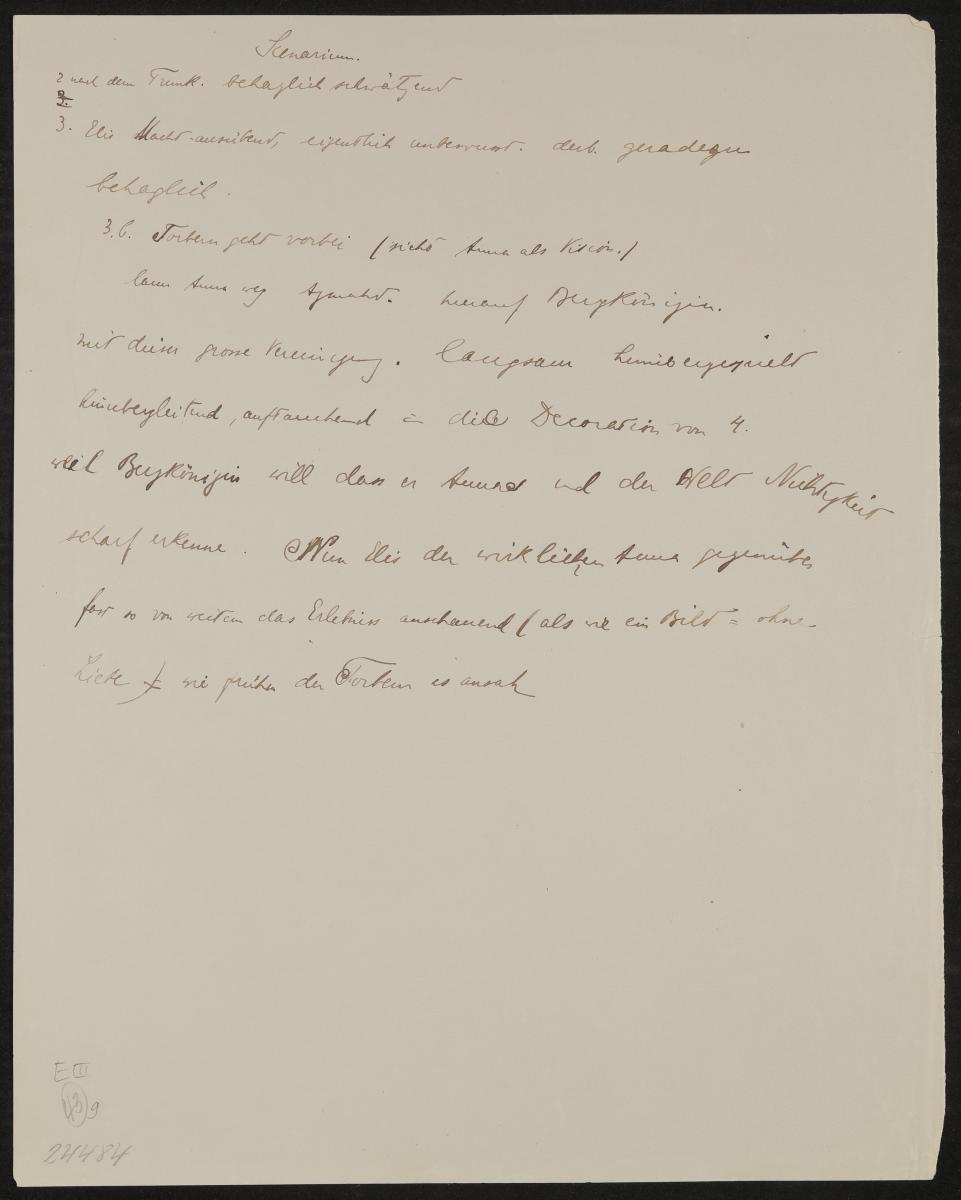 Scenarium.
2 nach dem Trunk. behaglich schwätzend
3. Elis Macht-ausübend, eigentlich unbewusst. derb. geradezu
behaglich.
3.b. Torbern geht vorbei (sieht Anna als Vision.)
dann Anna weg hierauf Bergkönigin.
mit dieser grosse Vereinigung. langsam hinübergespielt
hinübergleitend, auftauchend = die Decoration von 4.
weil Bergkönigin will dass er Annas und der Welt Nichtigkeit
scharf erkenne. Nun Elis der wirklichen Anna gegenüber
fast so von weitem das Erlebniss anschauend (als wie ein Bild = ohne
Liebe) = wie früher der Torbern es ansah
E III
43 9
24484